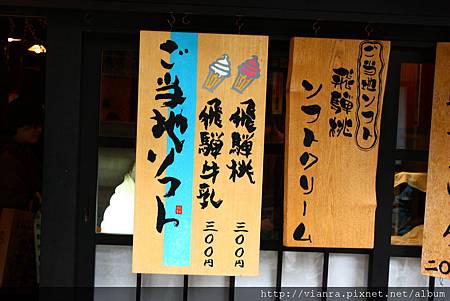 ご当地ソフト
飛騨桃
三〇〇円
飛騨牛乳
三〇〇円
ご当地ソフト
飛騨桃
ソフトクリーム
二〇
http://www.vianra.pixnet.net/album